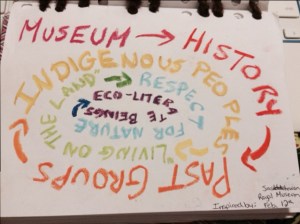 MUSEUM → HISTORY
PAST GROUPS
INDIGENOUS PEOPLES
"LIVING ON THE LAND"
RESPECT FOR NATURE
ECO-LITERATE BEINGS
Royal Museum
Inspired by: Feb. 12th